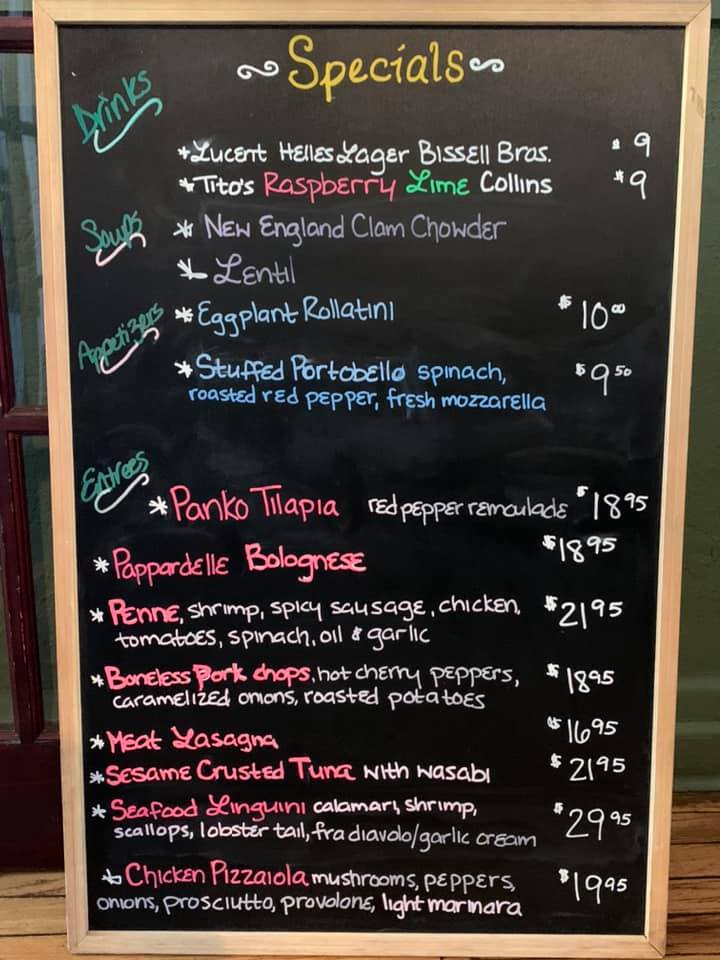 Specials
Drinks
*Lucent Helles Lager Bissell Bros. $9
*Tito's Raspberry Lime Collins $9
Soups
* New England Clam Chowder
* Lentil
Appetizers
*Eggplant Rollatini $10 00
*Stuffed Portobello spinach, $9 50
roasted red pepper, fresh mozzarella
Entrees
*Panko Tilapia red pepper remoulade $18 95
*Pappardelle Bolognese $18 95
*Penne, shrimp, spicy sausage, chicken, $21 95
tomatoes, spinach, oil & garlic
*Boneless Pork chops, hot cherry peppers, $18 95
caramelized onions, roasted potatoes
*Meat Lasagna $16 95
*Sesame Crusted Tuna with wasabi $21 95
*Seafood Linguini calamari, shrimp, $29 95
scallops, lobster tail, fra diavolo/garlic cream
*Chicken Pizzaiola mushrooms, peppers, $19 95
onions, prosciutto, provolone, light marinara